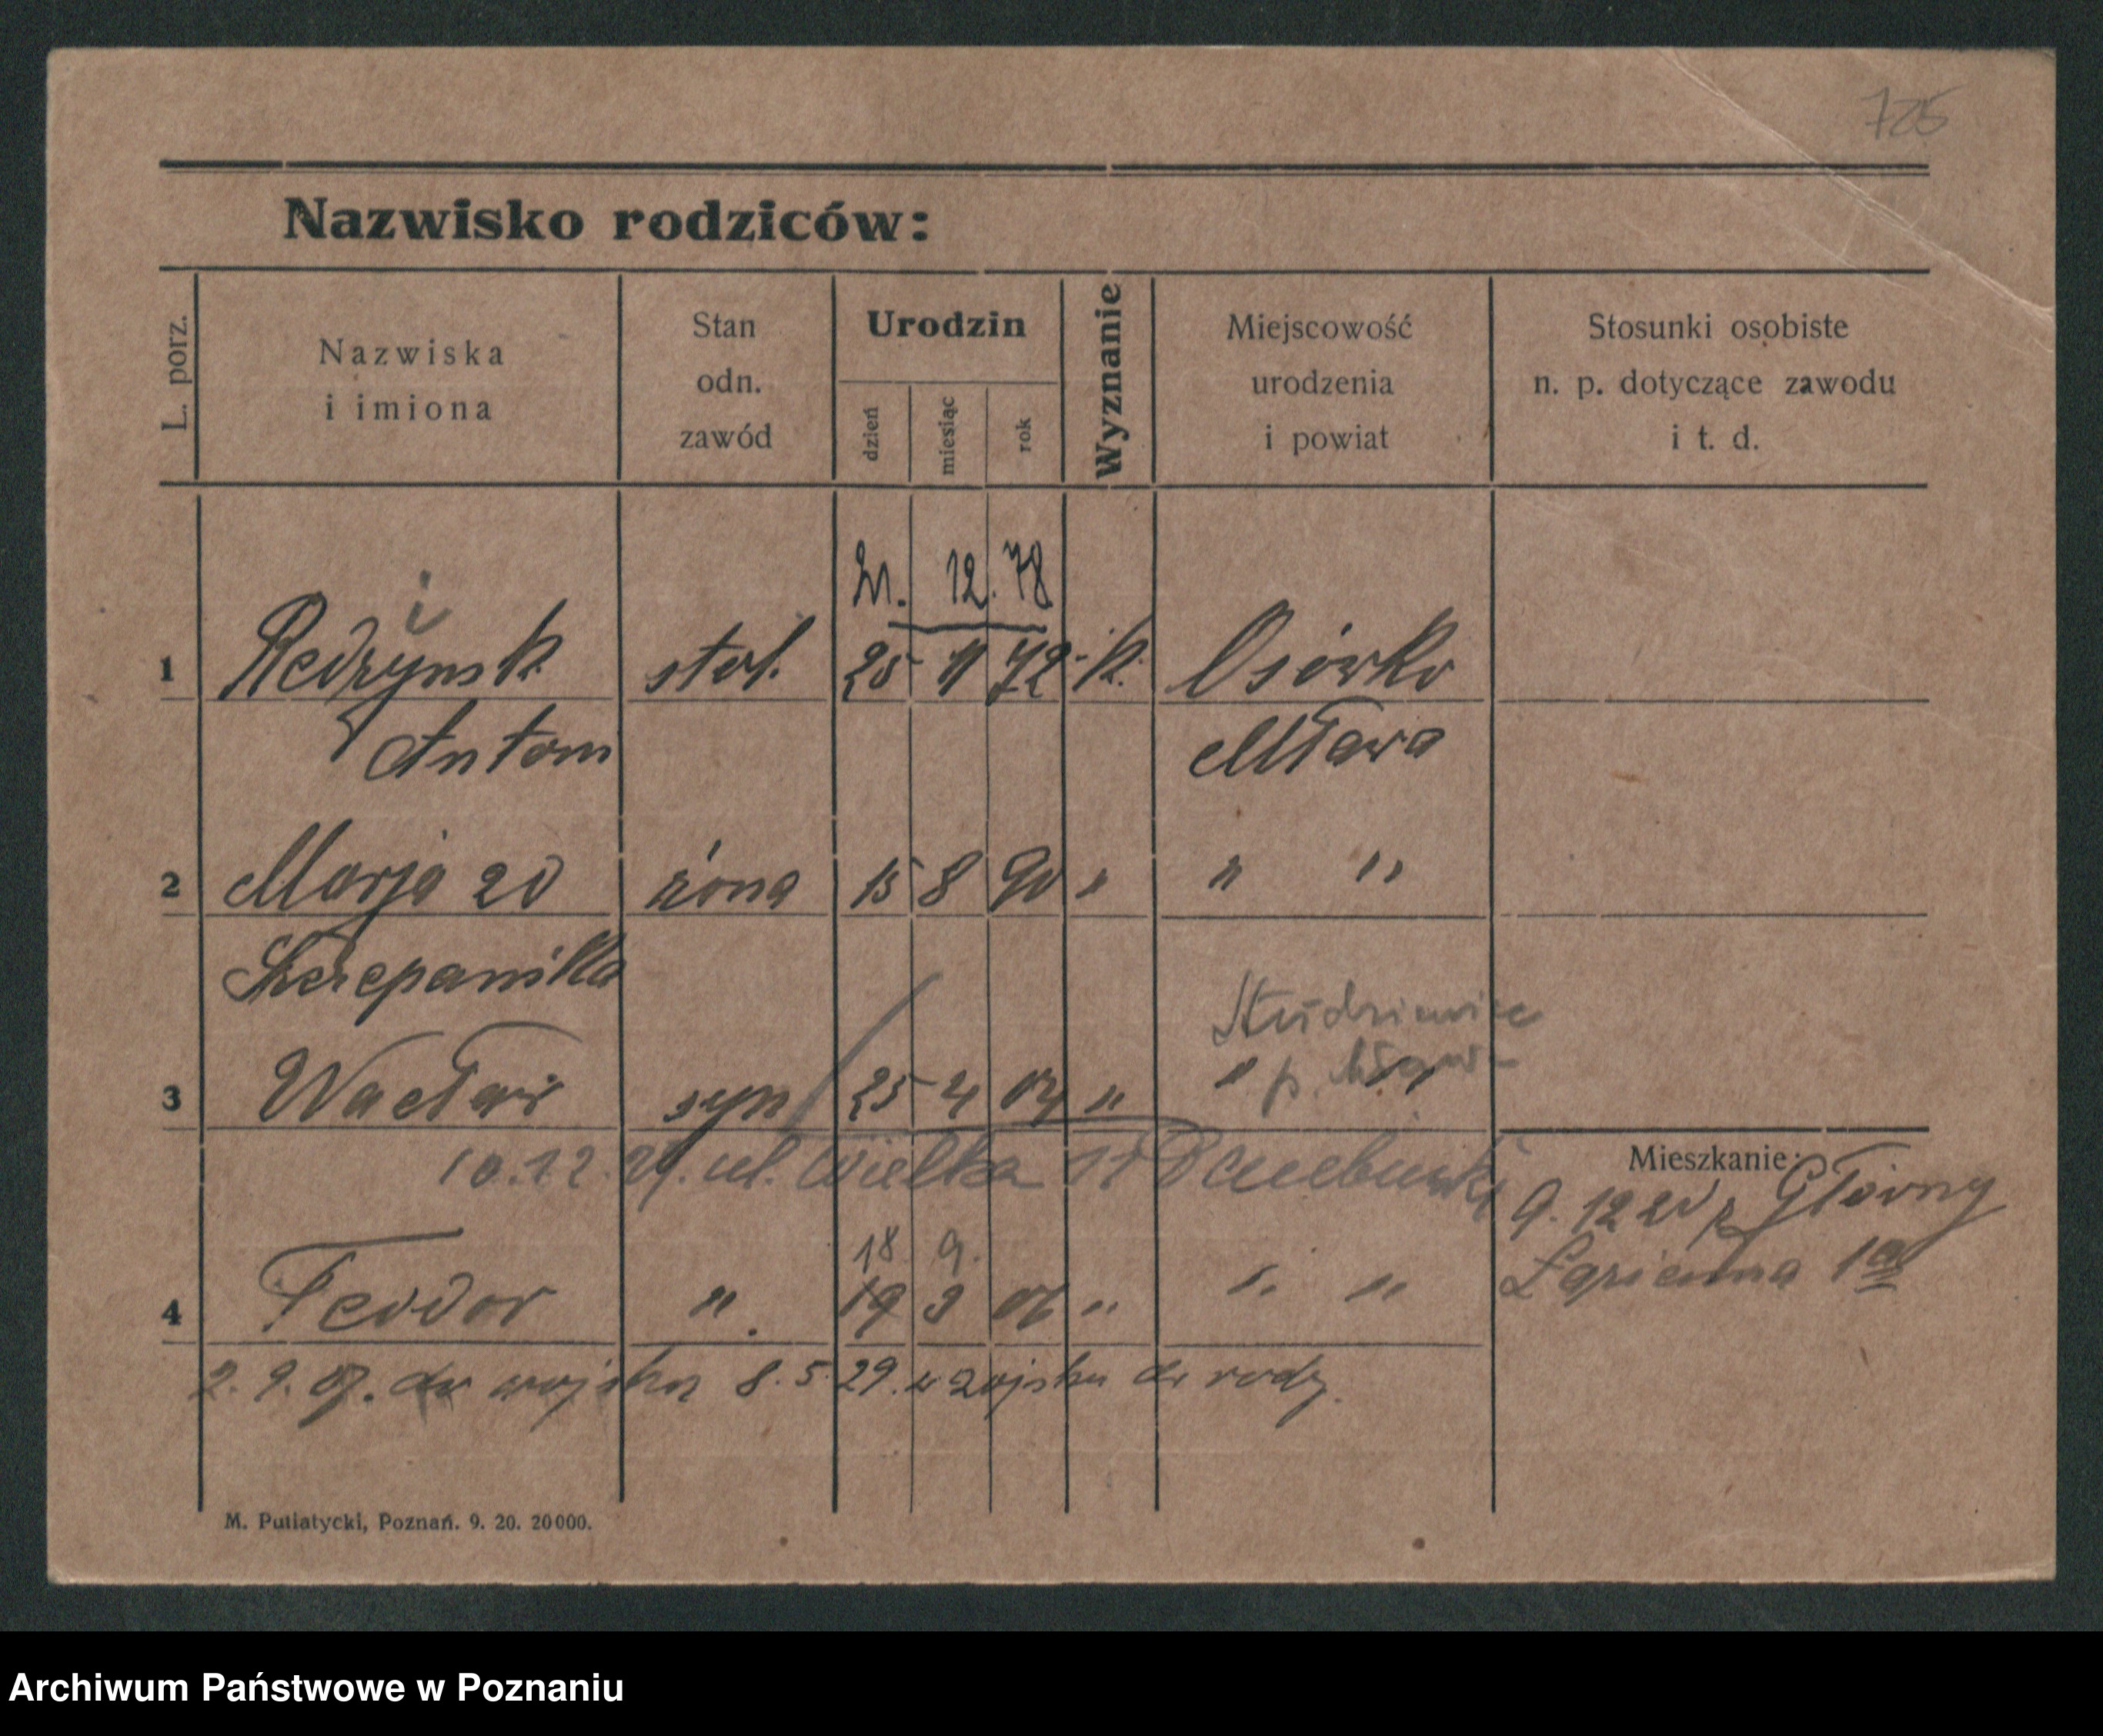 725
Nazwisko rodziców:
L. porz.
Nazwiska
i imiona
Stan
odn.
zawód
Urodzin
dzień
miesiąc
rok
Wyznanie
Miejscowość
urodzenia
i powiat
Stosunki osobiste
n. p. dotyczące zawodu
i t. d.
21. 12. 78
i
1 Redzynsk stol. 25 11 72 k. Osówko
Antoni Mława
2 Marja 20 żona 15 8 90 " " "
Szczepanska
Studzieniec
p.
3 Wacław syn 25 4 04 " " "
10.12. 29. ul. Wielka 17
Mieszkanie:
9. 12 20 z Główny
Łazienna 1a
18 9.
4 Teodor " 19 3 06 " " "
2. 9. 27. do wojska 8. 5. 29. z wojska do rodz.
M. Putiatycki, Poznań. 9. 20. 20000.
Archiwum Państwowe w Poznaniu